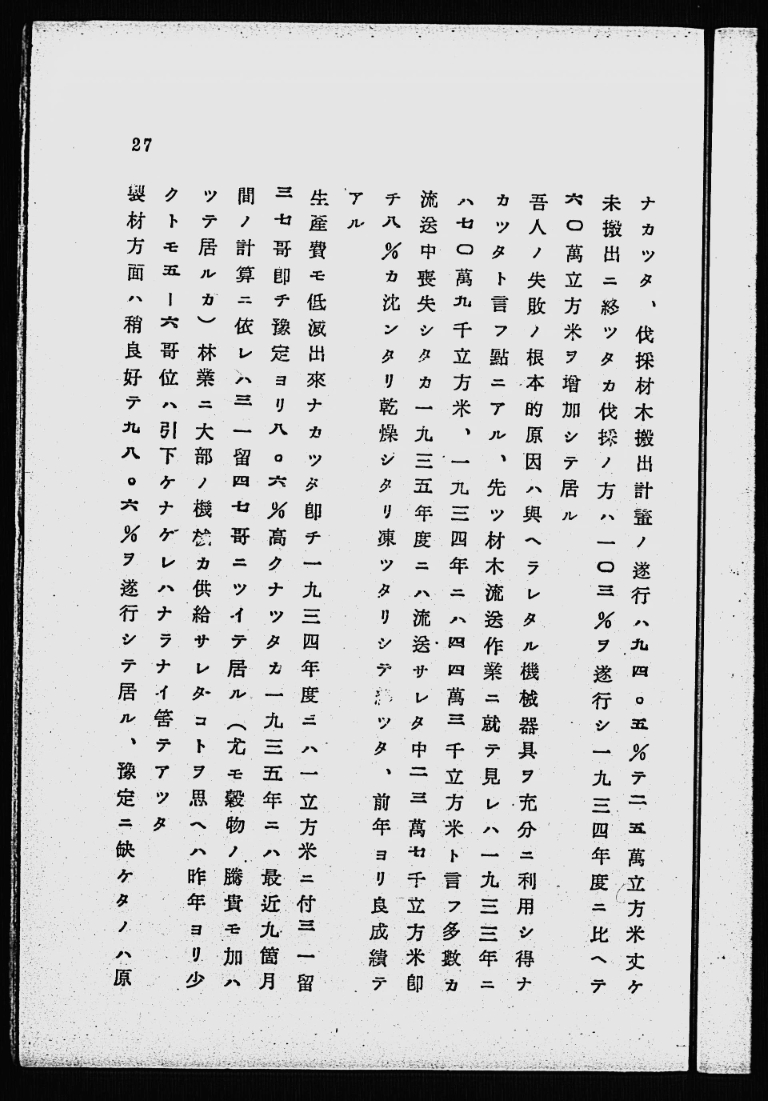 ナカツタ、伐採材木搬出計畫ノ遂行ハ九四。五%テ二五萬立方米丈ケ
未搬出ニ終ツタカ伐採ノ方ハ一〇三%ヲ遂行シ一九三四年度ニ比ヘテ
六〇萬立方米ヲ增加シテ居ル
吾人ノ失敗ノ根本的原因ハ與ヘラレタル機械器具ヲ充分ニ利用シ得ナ
カツタト言フ點ニアル、先ツ材木流送作業ニ就テ見レハ一九三三年ニ
ハ七〇萬九千立方米、一九三四年ニハ四四萬三千立方米ト言フ多數カ
流送中喪失シタカ一九三五年度ニハ流送サレタ中二三萬七千立方米卽
チ八%カ沈ンタリ乾燥シタリ凍ツタリシテ ツタ、前年ヨリ良成績テ
アル
生產費モ低減出來ナカツタ卽チ一九三四年度ニハ一立方米ニ付三一留
三七哥卽チ豫定ヨリ八。六%高クナツタカ一九三五年ニハ最近九箇月
間ノ計算ニ依レハ三一留四七哥ニツイテ居ル(尤モ穀物ノ騰貴モ加ハ
ツテ居ルカ)林業ニ大部ノ機械カ供給サレタコトヲ思ヘハ昨年ヨリ少
クトモ五ー六哥位ハ引下ケナケレハナラナイ筈テアツタ
製材方面ハ稍良好テ九八。六%ヲ遂行シテ居ル、豫定ニ缺ケタノハ原
27